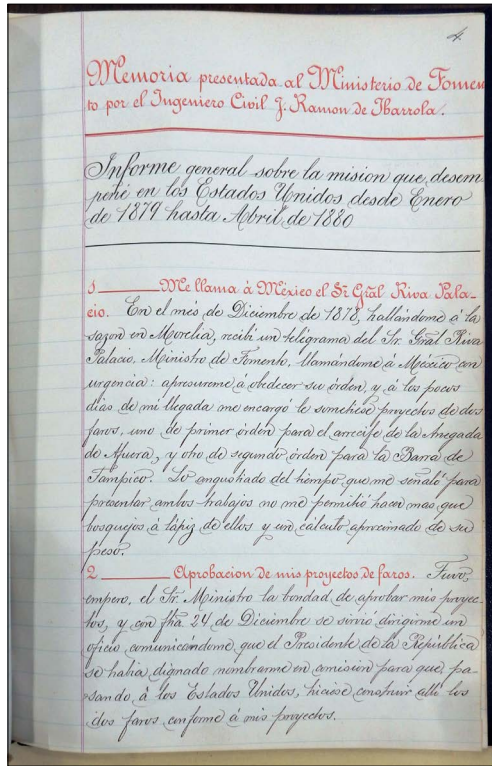 4.
Memoria presentada al Ministerio de Fomen
to por el Ingeniero Civil J. Ramon de Ibarrola.
Informe general sobre la mision que desem
peñé en los Estados Unidos desde Enero
de 1879 hasta Abril de 1880
1 ______ Me llama á México el Sr. Gral Riva Pala-
cio. En el més de Diciembre de 1878, hallándome á la
sazon en Morelia, recibí un telégrama del Sr. Gral Riva
Palacio, Ministro de Fomento, llamándome á México con
urgencia: apresureme á obedecer su órden, y á los pocos
dias de mi llegada me encargó le sometiese proyectos de dos
faros, uno de primer órden para el arrecife de la Anegada
de Afuera, y otro de segundo órden para la Barra de
Tampico. Lo angustiado del tiempo que me señaló para
presentar ambos trabajos no me permitió hacer mas que
bosquejos á lápiz de ellos y un cálculo aproximado de su
peso.
2 ______ Aprobacion de mis proyectos de faros. Tuvo,
empero, el Sr. Ministro la bondad de aprobar mis proyec-
tos, y con fha 24 de Diciembre se sirvió dirigirme un
oficio comunicándome que el Presidente de la República
se habia dignado nombrarme en comision para que, pa-
sando á los Estados Unidos, hiciese construir allí los
dos faros conforme á mis proyectos.